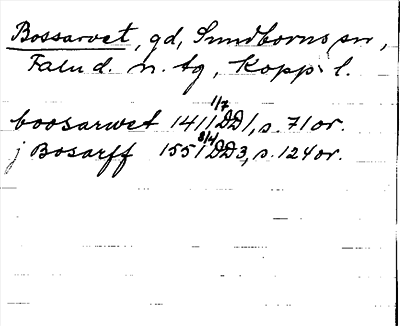 Bossarvet, gd, Sundborns sn,
Falu d. n. tg, Kopp. l.
boosarwet 1411 1/7 DD1, s. 71 or.
j Bosarff 1551 3/4 DD3, s. 124 or.